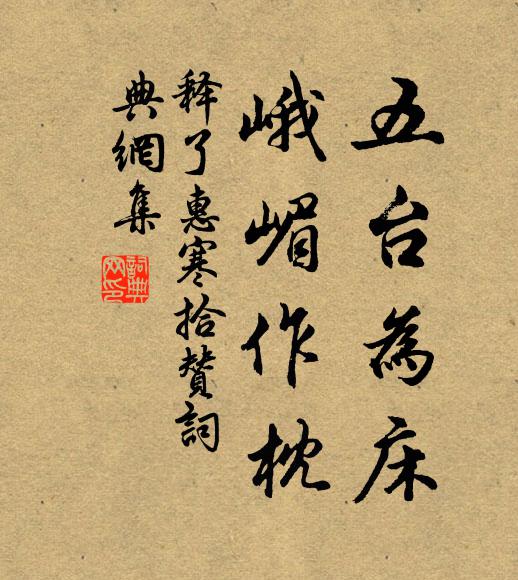 五台為床
峨嵋作枕
釋了惠寒拾贊詞
典網集
詞典网印